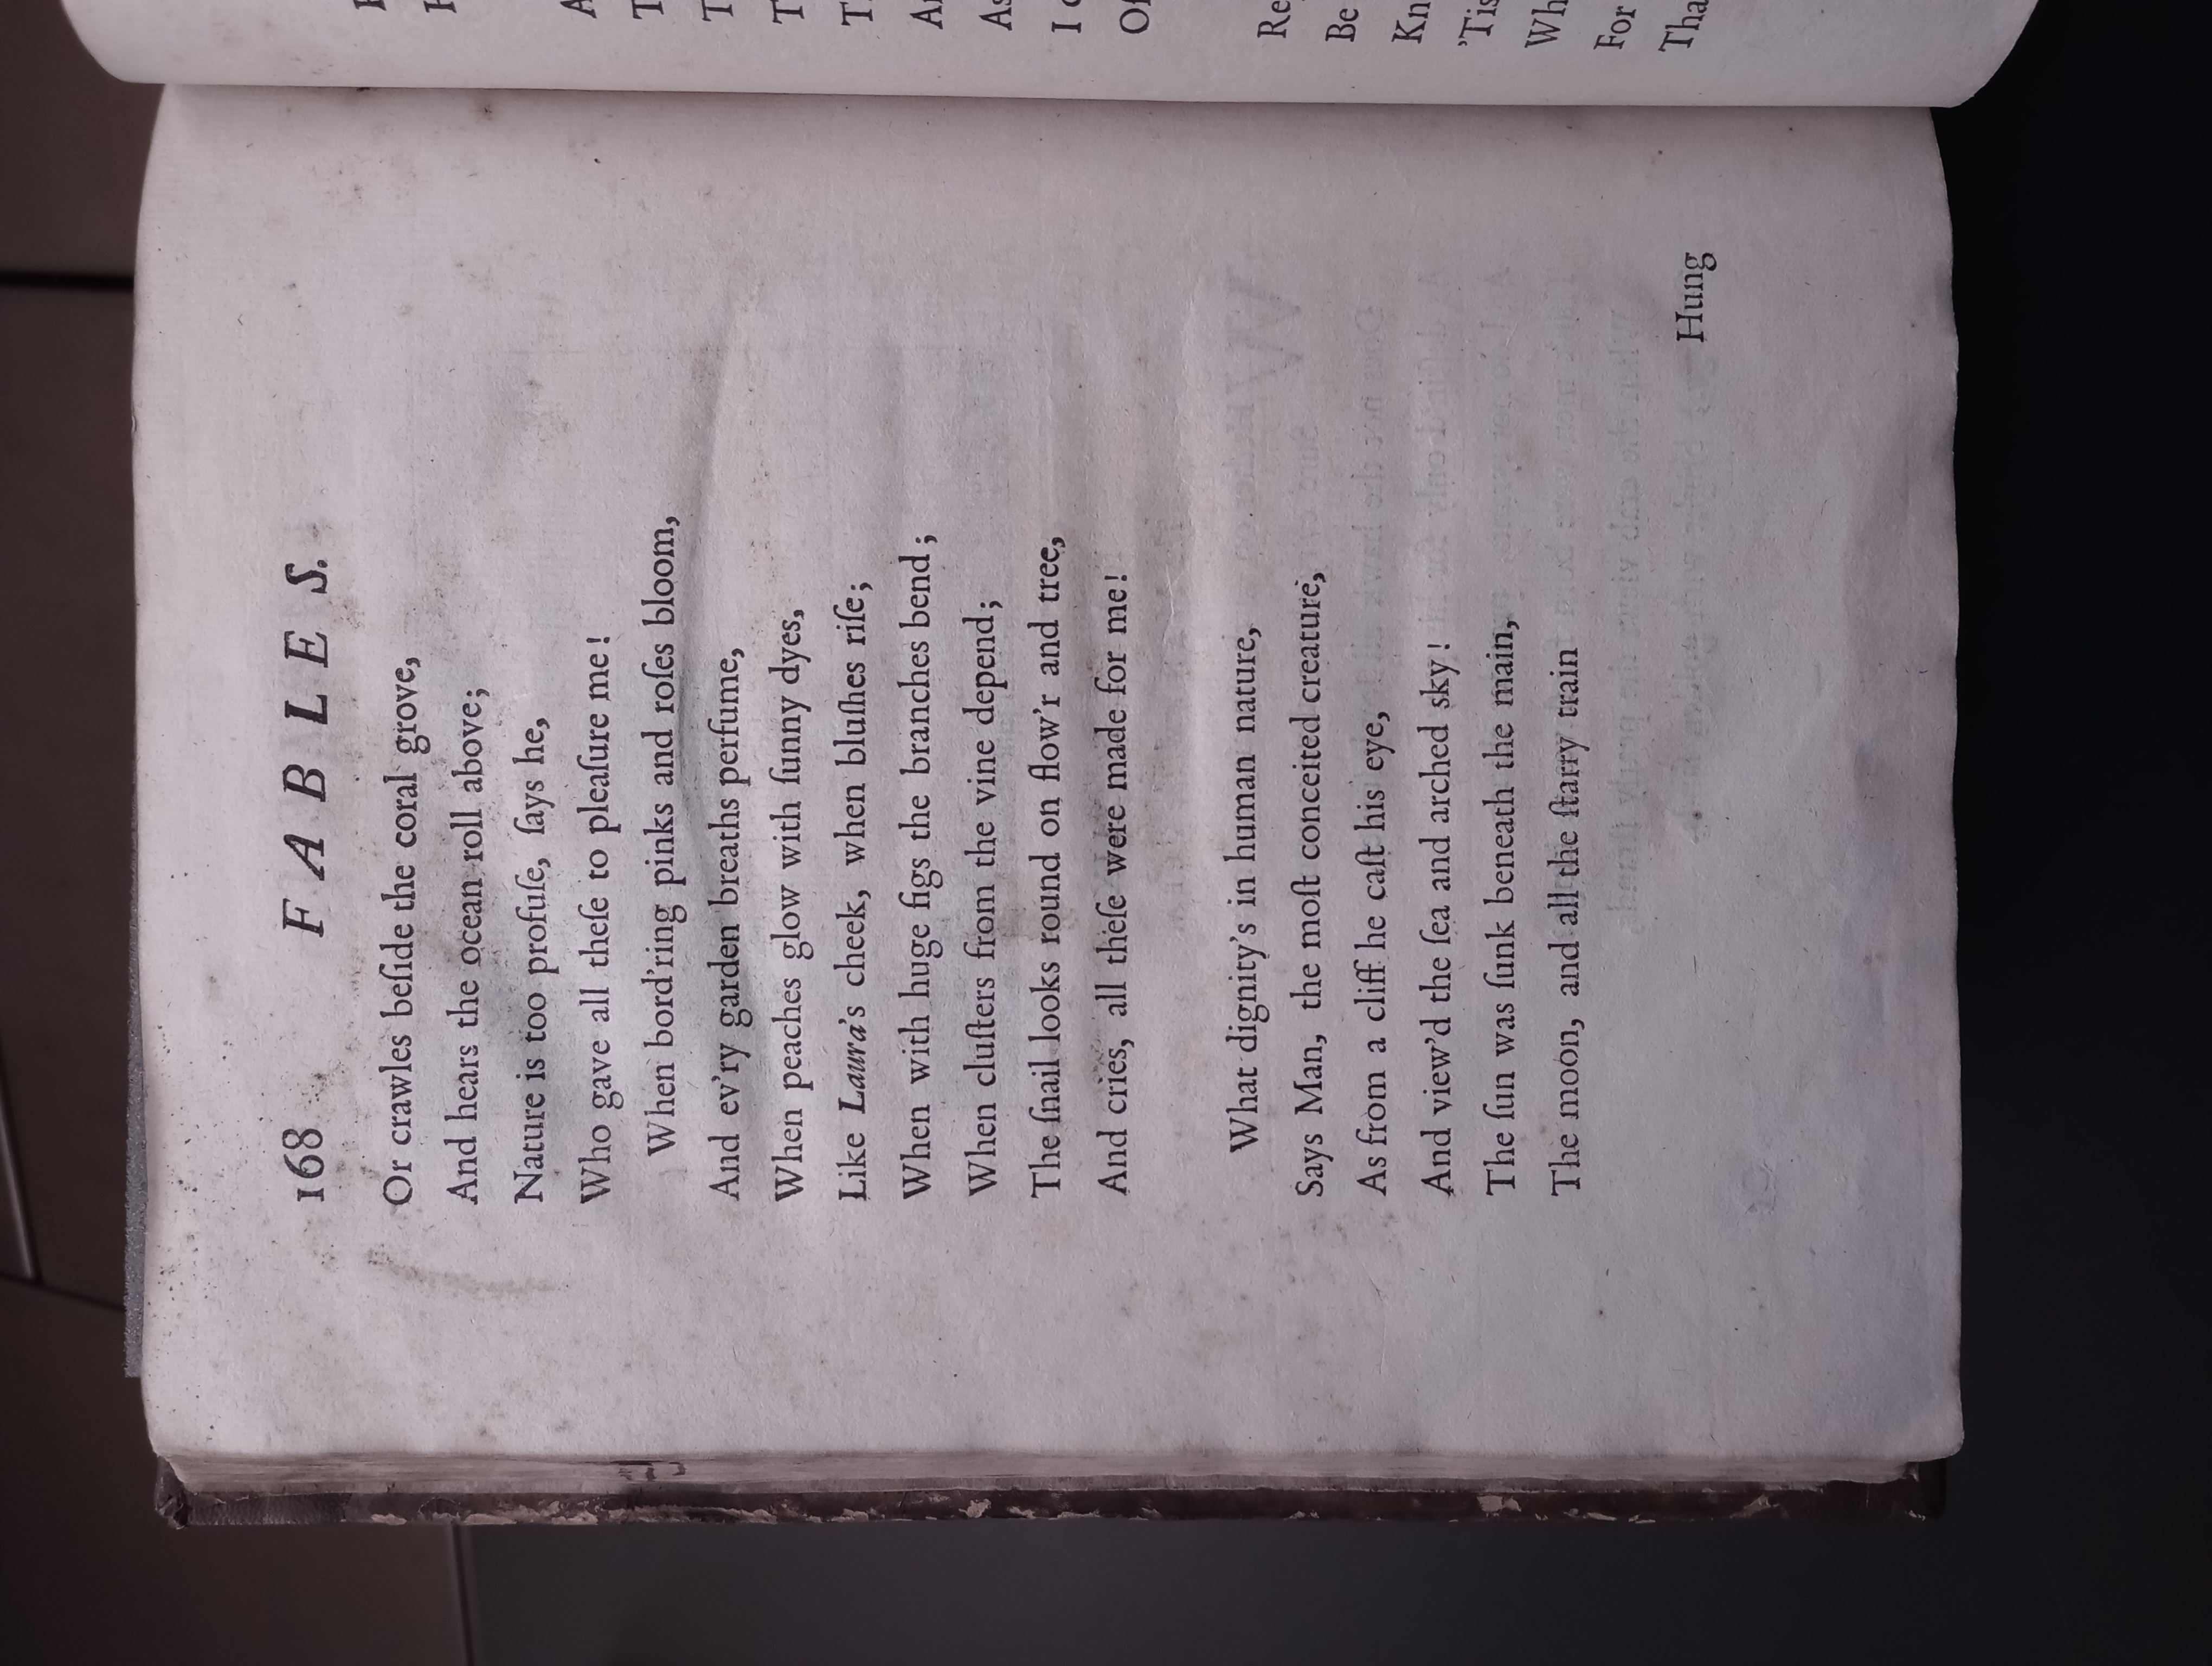 168 FABLES.
Or crawles beſide the coral grove,
And hears the ocean roll above;
Nature is too profuſe, ſays he,
Who gave all theſe to pleaſure me!
When bord'ring pinks and roſes bloom,
And ev'ry garden breaths perfume,
When peaches glow with ſunny dyes,
Like Laura's cheek, when bluſhes riſe;
When with huge figs the branches bend;
When cluſters from the vine depend;
The ſnail looks round on flow'r and tree,
And cries, all theſe were made for me!
What dignity's in human nature,
Says Man, the moſt conceited creature,
As from a cliff he caſt his eye,
And view'd the ſea and arched sky!
The ſun was ſunk beneath the main,
The moon, and all the ſtarry train
Hung
I
Re
Be
Kn
'Tis
Wh
For
Tha